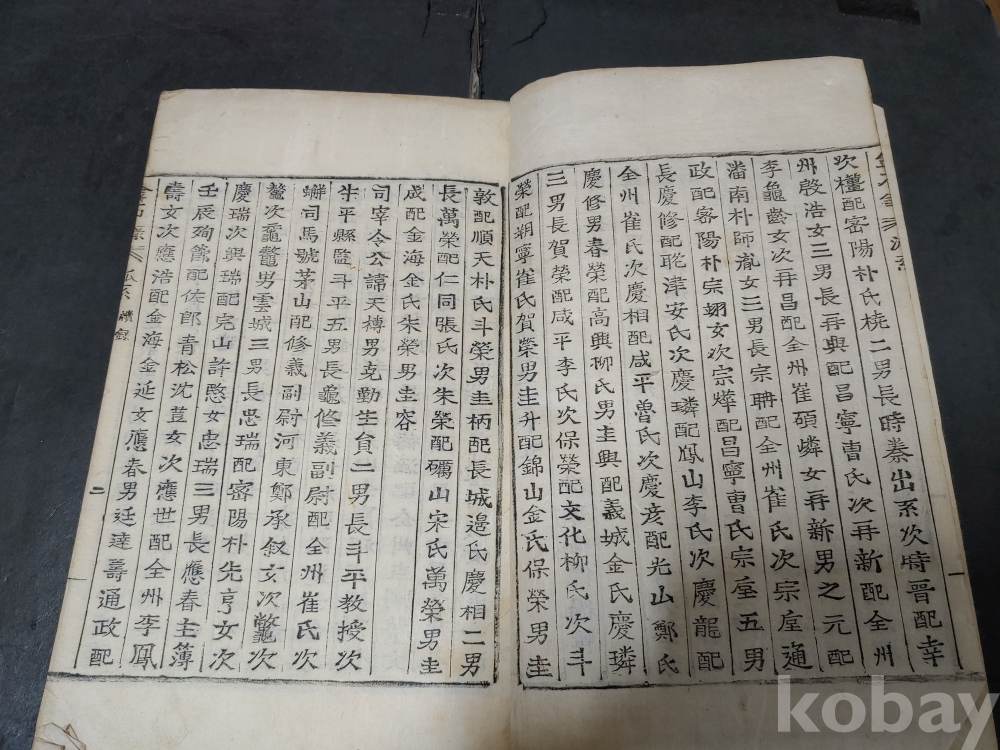 次欌配密陽朴氏橈二男長時蓁出系次時晋配幸
州殷浩女三男長再興配昌寧曺氏次再新配全州
李龜齡女次再昌配全州崔碩嶙女再新男之元配
潘南朴師胤女三男長宗聃配全州崔氏次宗垕通
政配密陽朴宗翊女次宗燁配昌寧曺氏宗垕五男
長慶修配耽津安氏次慶璘配鳳山李氏次慶龍配
全州崔氏次慶相配咸平魯氏次慶彦配光山鄭氏
慶修男春榮配高興柳氏男圭興配義城金氏慶璘
三男長賀榮配咸平李氏次保榮配文化柳氏次斗
榮配朔寧崔氏賀榮男圭升配錦山金氏保榮男圭
一
敦配順天朴氏斗榮男圭柄配長城邉氏慶相二男
長萬榮配仁同張氏次朱榮配礪山宋氏萬榮男圭
成配金海金氏朱榮男圭容
司宰令公諱天榑男克勤生負二男長斗平教授次
牛平縣監斗平五男長龜修義副尉配全州崔氏次
司馬號茅山配修義副尉河東鄭承叙女次鼈次
鰲次黿鼇男雲城三男長忠瑞配密陽朴先亨女次
慶瑞次興瑞配完山許愍女忠瑞三男長應春主簿
壬辰殉節配佐郎青松沈荳女次應世配全州李鳳
壽女次應浩配金海金延女應春男廷達壽通政配
二
kobay